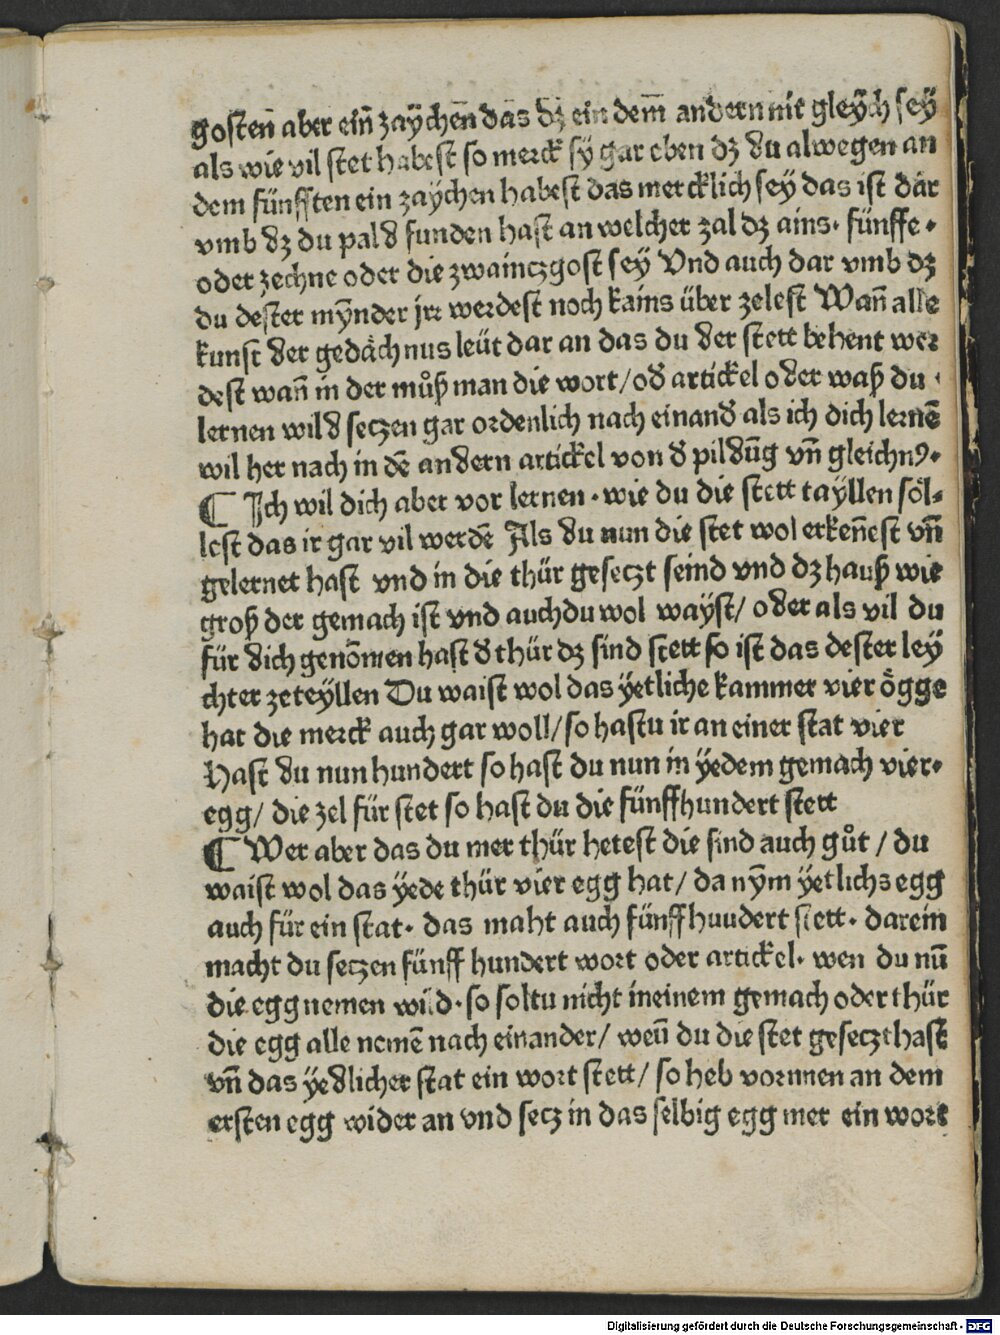 gosten̄ aber ein̄ zaÿchen̄ das dz ein dem̄ andern nit gleÿch seÿ
als wie vil stet habest so merck sÿ gar eben dz du alwegen an
dem fünfften ein zaÿchen habest das mercklich seÿ das ist dar
vmb dz du pald funden hast an welcher zal dz ains· fünffe·
oder zechne oder die zwainczgost seÿ Vnd auch dar vmb dz
du dester mÿnder jrr werdest noch kains über zelest Wan̄ alle
kunst der gedächnus leüt dar an das du der stett behent wer
dest wan̄ in der můß man die wort/od artickel oder waß du
lernen wild seczen gar ordenlich nach einand als ich dich lernē
wil her nach in dē andern artickel von d pildūg vn̄ gleichnꝰ·
¶ Ich wil dich aber vor lernen·wie du die stett tayllen söl⸗
lest das ir gar vil werdē Als du nun die stet wol erken̄est vn̄
gelernet hast vnd in die thür geseczt seind vnd dz hauß wie
groß der gemach ist vnd auchdu wol wayst/ oder als vil du
für dich genōmen hast d thür dz sind stett so ist das dester leÿ
chter zeteÿllen Du waist wol das ÿetliche kammer vier ögge
hat die merck auch gar woll/so hastu ir an einer stat vier
Hast du nun hundert so hast du nun in ÿedem gemach vier⸗
egg/ die zel für stet so hast du die fünffhundert stett
¶ Wer aber das du mer thür hetest die sind auch gůt / du
waist wol das ÿede thür vier egg hat/ da nÿm ÿetlichs egg
auch für ein stat· das maht auch fünffhuudert stett· darein
macht du seczen fünff hundert wort oder artickel· wen du nū
die egg nemen wild·so soltu nicht ineinem gemach oder thür
die egg alle nemē nach einander/ wen̄ du die stet geseczt hast
vn̄ das ÿedlicher stat ein wort stett/ so heb vornnen an dem
ersten egg wider an vnd secz in das selbig egg mer ein wort
Digitalisierung gefördert durch die Deutsche Forschungsgemeinschaft - DFG